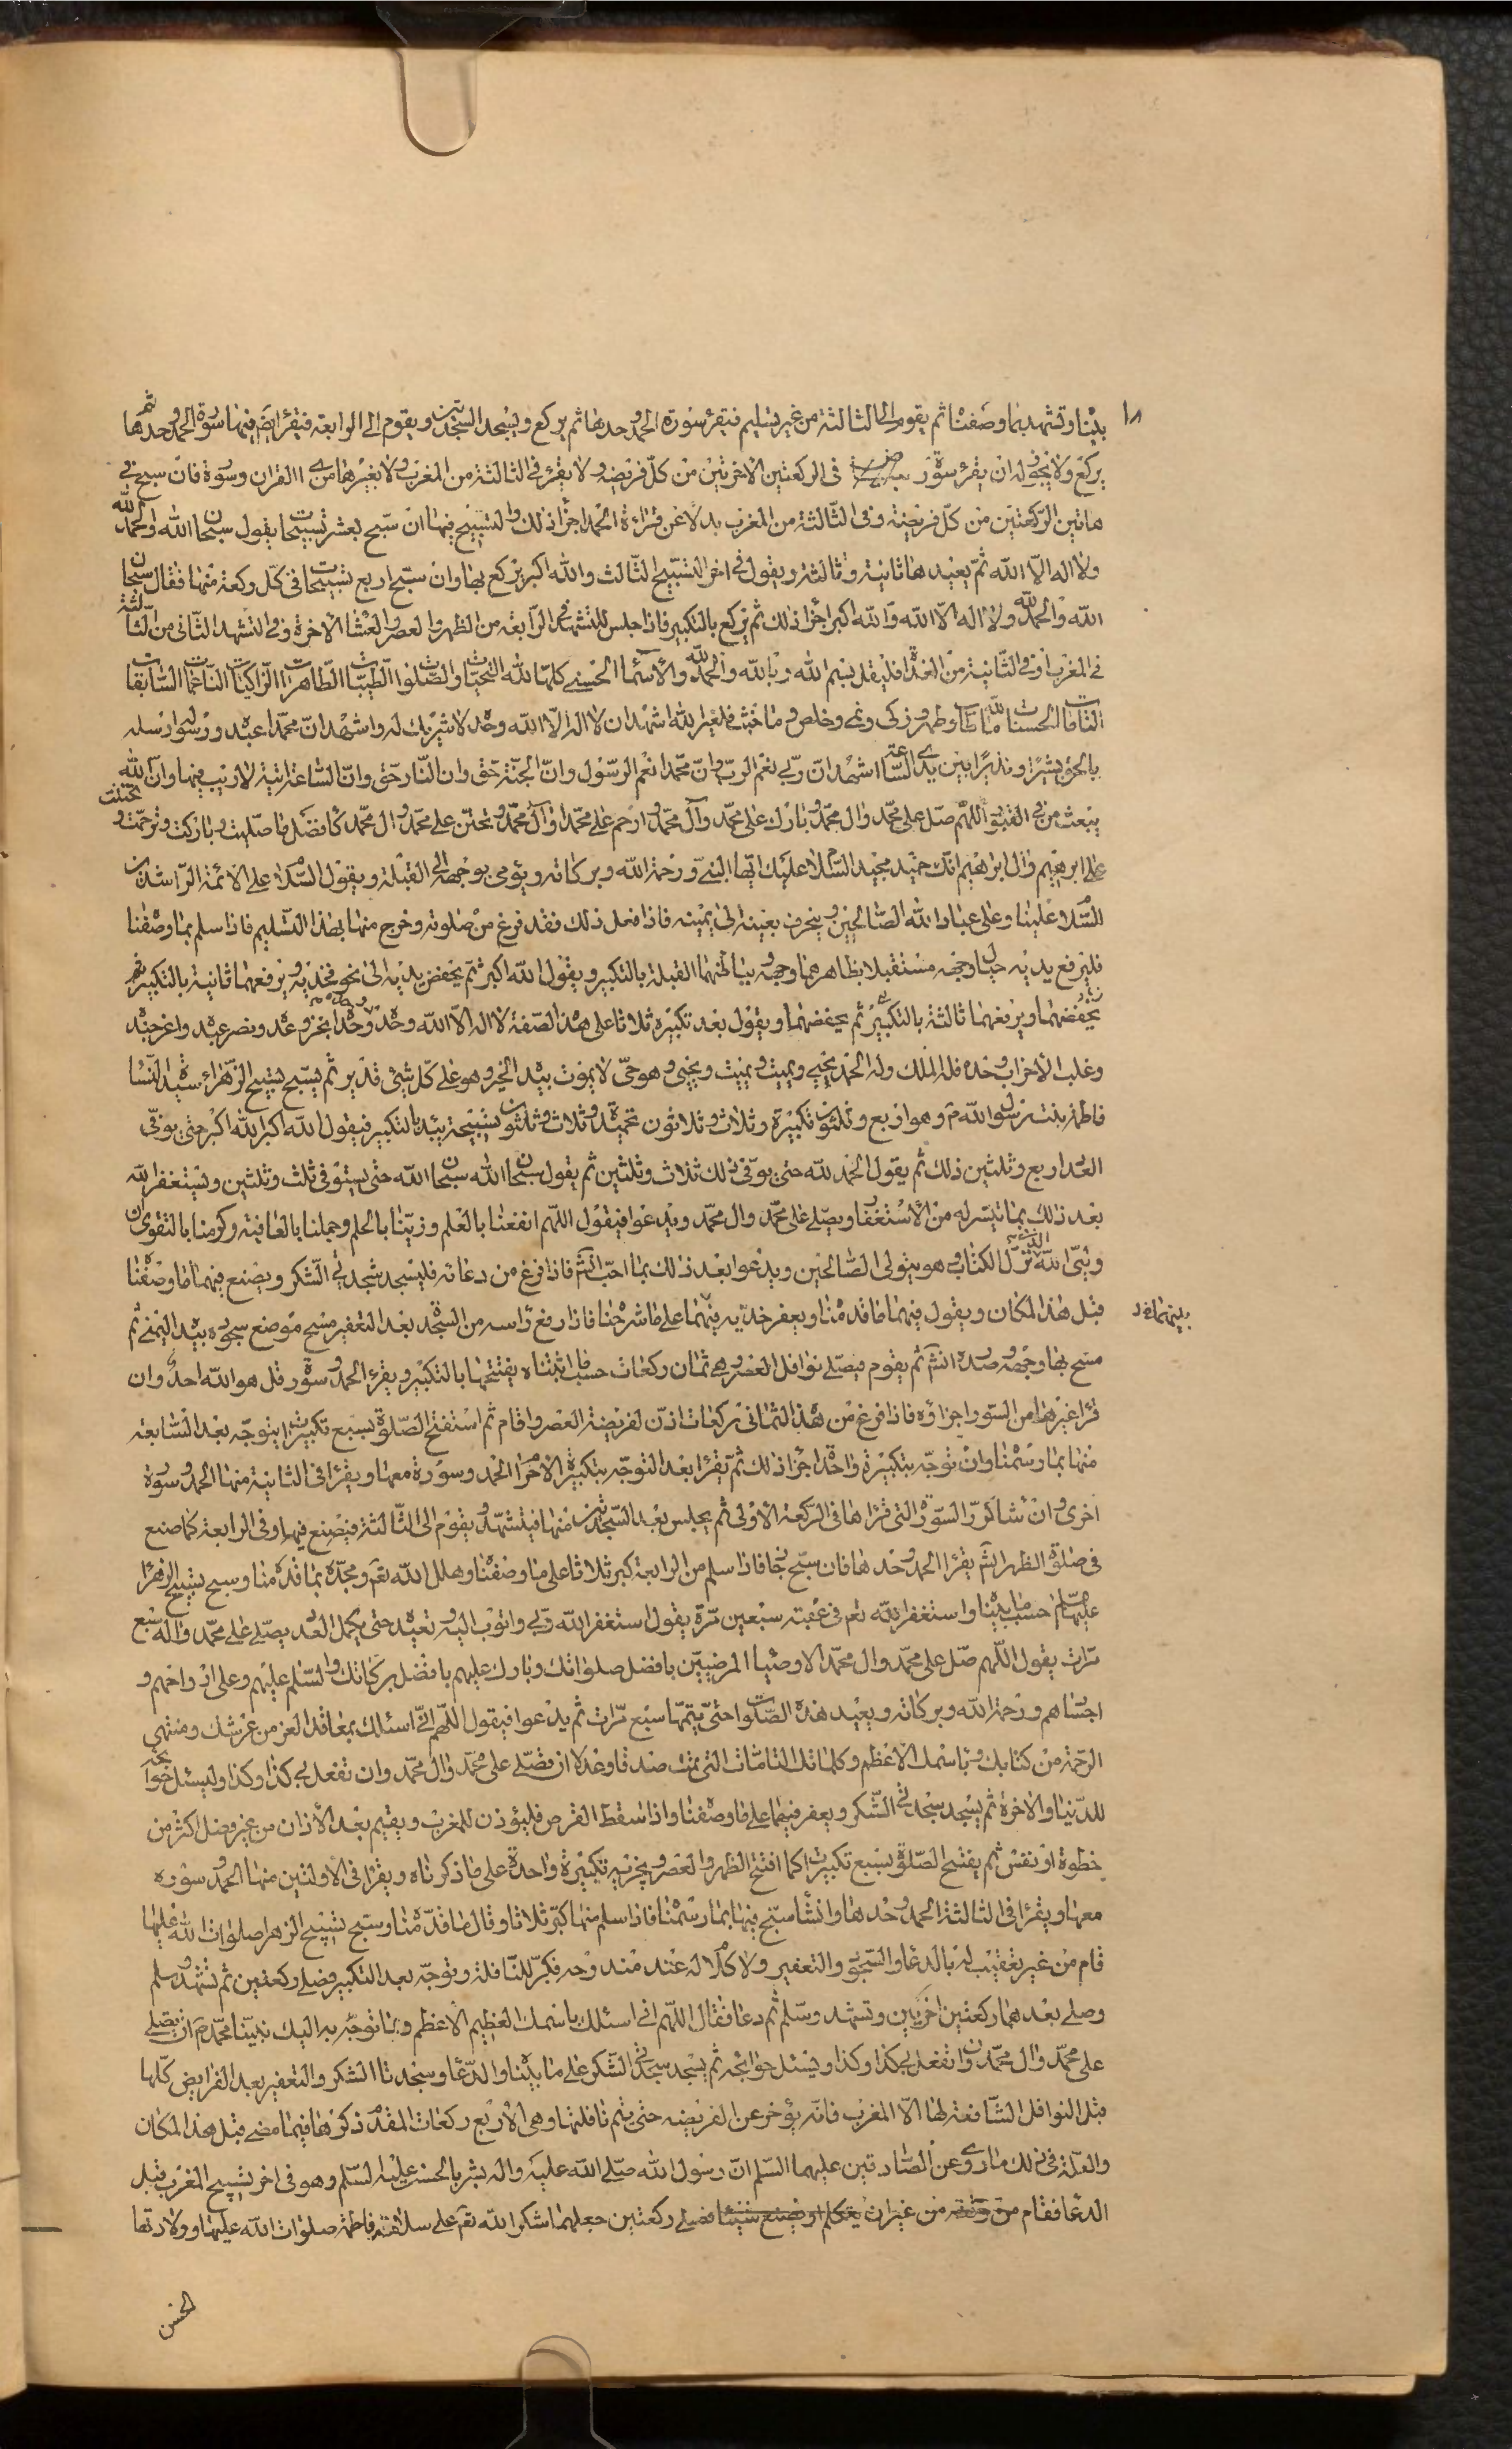 ١٨
بيّنا وتشهد بما وصفنا ثم يقوم الى الثالثة من غير تسليم فيقرء سورة الحمد وحدها ثم يركع ويسجد السجدتين ويقوم الى الرابعة فيقرء ايضا فيها سورة الحمد وحدها ثم
يركع ولا يجوز له ان يقرء سورة بعد في الركعتين الاخرتين من كلّ فريضه ولا يقرء في الثالثة من المغرب ولا بغيرها من القران وسورة فان سبح في
هاتين الركعتين من كلّ فريضة وفي الثالثة من المغرب بدلا عن قراءة الحمد اجزأ ذلك والتسبيح فيها ان سبّح بعشر تسبيحات يقول سبحان الله والحمد لله
ولا اله الّا الله ثمّ يعيدها ثانية وثالثة ويقول في اخر التسبيح الثالث والله اكبر يركع بها وان سبّح اربع تسبيحات في كلّ ركعة منها فقال سبحان
الله والحمد لله ولا اله الّا الله والله اكبر اجزأ ذلك ثم يركع بالتكبير فاذا جلس للتشهد في الرّابعة من الظهر والعصر والعشاء الاخرة وفي التشهد الثاني من الثالثة
في المغرب او في الثّانية من الغداة فليقل بسم الله وبالله والحمد لله والاسماء الحسنى كلها لله التحيّات والصّلوات الطّيبات الطّاهرات الزّاكيات النّاعمات السّابغات
التّامّات الحسنات لله ما طاب وطهر وزكى ونمى وخلص وما خبث فلغير الله اشهد ان لا اله الّا الله وحده لا شريك له واشهد انّ محمّدا عبده ورسوله ارسله
بالحق بشيرا ونذيرا بين يدي السّاعة اشهد انّ ربّي نعم الربّ وانّ محمّدا نعم الرّسول وانّ الجنّة حقّ وان النّار حقّ وانّ السّاعة اتية لا ريب فيها وانّ الله
يبعث من في القبور اللّهم صلّ على محمّد وال محمّد وبارك على محمّد وآل محمّد وارحم على محمّد وآل محمّد وتحنّن على محمّد وال محمّد كافضل ما صلّيت وباركت وترحّمت وتحنّنت
على ابرهيم وال ابرهيم انّك حميد مجيد السّلام عليك ايّها النبيّ ورحمة الله وبركاته ويؤمي بوجهه الى القبلة ويقول السّلام على الائمّة الرّاشدين
السّلام علينا وعلى عباد الله الصّالحين وينحرف بعينه الى يمينه فاذا فعل ذلك فقد فرغ من صلوته وخرج منها بهذا التّسليم فاذا سلم بما وصفنا
فليرفع يديه حيال وجهه مستقبلا بظاهرهما وجهه وبباطنهما القبلة بالتكبير ويقول الله اكبر ثمّ يخفض يديه الى نحو فخذيه ويرفعهما ثانية بالتكبير ثم
يخفضهما ويرفعهما ثالثة بالتكبير ثم يخفضهما ويقول بعد تكبيره ثلاثا على هذه الصّفة لا اله الّا الله وحده وحده انجز وعده ونصر عبده واعز جنده
وغلب الاحزاب وحده فله الملك وله الحمد يحيي ويميت ويميت ويحيي وهو حيّ لا يموت بيده الخير وهو على كلّ شيئ قدير ثم يسبّح تسبيح الزّهراء سيدة النّساء
فاطمة بنت رسول الله ص وهو اربع وثلثون تكبيرة وثلاث وثلاثون تحميدة وثلاث وثلثون تسبيحة يبدء بالتكبير فيقول الله اكبر الله اكبر حتى يوفّي
العدد اربع وثلثين ذلك ثم يقول الحمد لله حتى يوفّي ذلك ثلاث وثلثين ثم يقول سبحان الله سبحان الله حتّى يستوفي ثلث وثلثين ويستغفر الله
بعد ذلك بما تيسّر له من الاستغفار ويصلّي على محمّد وال محمّد ويدعوا فيقول اللّهم انفعنا بالعلم وزيّنّا بالحلم وجمّلنا بالعافية وكرّمنا بالتقوى ان
وليّي الله الذي نزّل الكتاب وهو يتولى الصّالحين ويدعوا بعد ذلك بما احبّ انش فاذا فرغ من دعائه فليسجد سجدتي الشّكر ويصنع فيهما ما وصفنا
قبل هذا المكان ويقول فيهما ما قدّمنا ويعفر خدّيه بينهما على ما شرحنا فاذا رفع رأسه من السّجدة بعد التعفير مسح موضع سجوده بيده اليمنى ثم
بينهما
مسح بها وجهه وصدره انش ثم يقوم فيصلّي نوافل العصر وهي ثمان ركعات حسب ما اثبتناه يفتتحها بالتكبير ويقرء الحمد وسورة قل هو الله احد وان
قرأ غيرها من السّور اجزأه فاذا فرغ من هذه الثماني ركعات اذّن لفريضة العصر واقام ثم استفتح الصّلوة بسبع تكبيرات يتوجّه بعد السّابعة
منها بما رسمنا وان توجّه بتكبيرة واحدة اجزأ ذلك ثمّ يقرأ بعد التوجّه بتكبيرة الاحرام الحمد وسورة معها ويقرأ في الثانية منها الحمد وسورة
اخرى وان شاء كرّر السّورة التي قرأها في الرّكعة الاولى ثم يجلس بعد السّجدتين منها فيتشهّد ويقوم الى الثّالثة فيصنع فيها وفي الرابعة كما صنع
في صلوة الظهر انش يقرأ الحمد وحدها فان سبّح فيها فاذا سلم من الرابعة كبر ثلاثا على ما وصفنا وهلل الله تعم ومجّده بما قدّمنا وسبح تسبيح الزهراء
عليها السّلم حسب ما بيّنا واستغفر الله تعم في عقبه سبعين مرّة يقول استغفر الله ربّي واتوب اليه وتعيده حتى يكمل العدد ويصلّي على محمّد واله سبع
مرّات يقول اللّهم صلّ على محمّد وال محمّد الاوصياء المرضيّين بافضل صلواتك وبارك عليهم بافضل بركاتك والسّلم عليهم وعلى ارواحهم و
اجسادهم ورحمة الله وبركاته ويعيد هذه الصّلوات حتّى يتمّها سبع مرّات ثم يدعوا فيقول اللّهم انّي اسئلك بمعاقد العز من عرشك ومنتهى
الرّحمة من كتابك وباسمك الاعظم وكلماتك التامّات التي تمّت صدقا وعدلا ان تصّلي على محمّد وآل محمّد وان تفعل بي كذا وكذا وليسئل حوائجه
للدّنيا والاخرة ثم يسجد سجدتي الشّكر ويعفر فيهما على ما وصفنا واذا سقط القرص فليؤذن للمغرب ويقيم بعد الاذان من غير فصل اكثر من
خطوة او نفس ثم يفتتح الصّلوة بسبع تكبيرات كما افتتح الظهر والعصر ويجزيه تكبيرة واحدة على ما ذكرناه ويقرأ في الاولتين منها الحمد وسوره
معها ويقرأ في الثالثة الحمد وحدها وان شاء سبّح فيها بما رسمنا فاذا سلم منها كبّر ثلاثا وقال ما قدّمنا وسبّح تسبيح الزهراء صلوات الله عليها
قام من غير تعقيب له بالدعاء والسّجود والتعفير ولا كلام له عند مندوحه فكبّر للنّافلة وتوجّه بعد التكبير وصلى ركعتين ثم تشهّد وسلم
وصلى بعدهما ركعتين اخريين وتشهد وسلّم ثم دعا فقال اللّهم انّي اسئلك باسمك العظيم الاعظم وبما توجّه به اليك نبيّنا محمّد ص ان تصلي
على محمّد وال محمّد وان تفعل بي كذا وكذا ويسئل حوائجه ثم يسجد سجدتي الشّكر على ما بيّنا والدّعاء وسجدتا الشكر والتعفير بعد الفرايض كلها
قبل النوافل الشّافعة لها الّا المغرب فانّه يؤخر عن الفريضه حتى يتم نافلتها وهي الاربع ركعات المقدّم ذكرها فيما مضى قبل هذا المكان
والعلّة في ذلك ما روى عن الصّادقين عليهما السّلم انّ رسول الله صلّى الله عليه واله بشر بالحسن عليه السّلم وهو في اخر تسبيح المغرب قبل
الدعاء فقام من وقته من غير ان يتكلم او يصنع شيئا فصلى ركعتين جعلهما شكرا لله تعم على سلامة فاطمة صلوات الله عليها وولادتها
الحسن